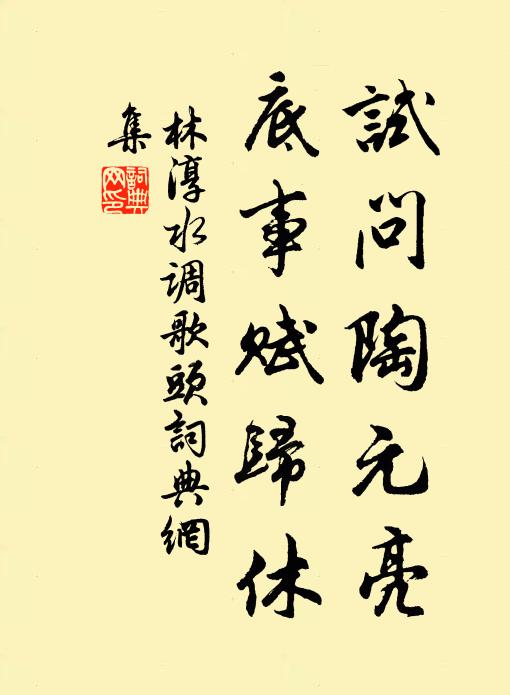 試問陶元亮
底事賦歸休
林淳水调歌頭詞典網
集
詞典网印